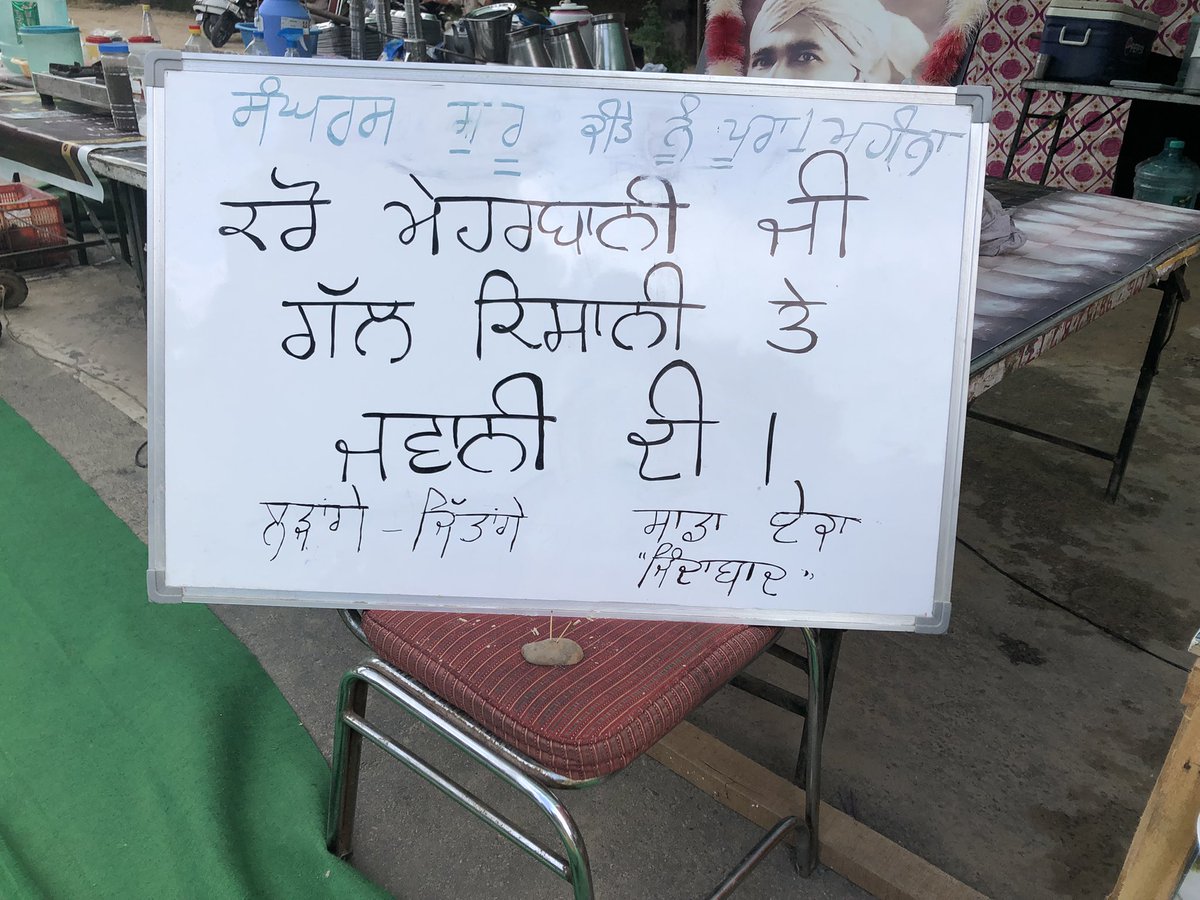 ਸੰਘਰਸ ਸ਼ੁਰੂ ਕੀਤੇ ਨੂੰ ਪੂਰਾ 1 ਮਹੀਨਾ
ਕਰੋ ਮੇਹਰਬਾਨੀ ਜੀ
ਗੱਲ ਕਿਸਾਨੀ ਤੇ
ਜਵਾਨੀ ਦੀ ।
ਲੜਾਂਗੇ - ਜਿੱਤਾਂਗੇ
ਸਾਡਾ ਏਕਾ
"ਜਿੰਦਾਬਾਦ"